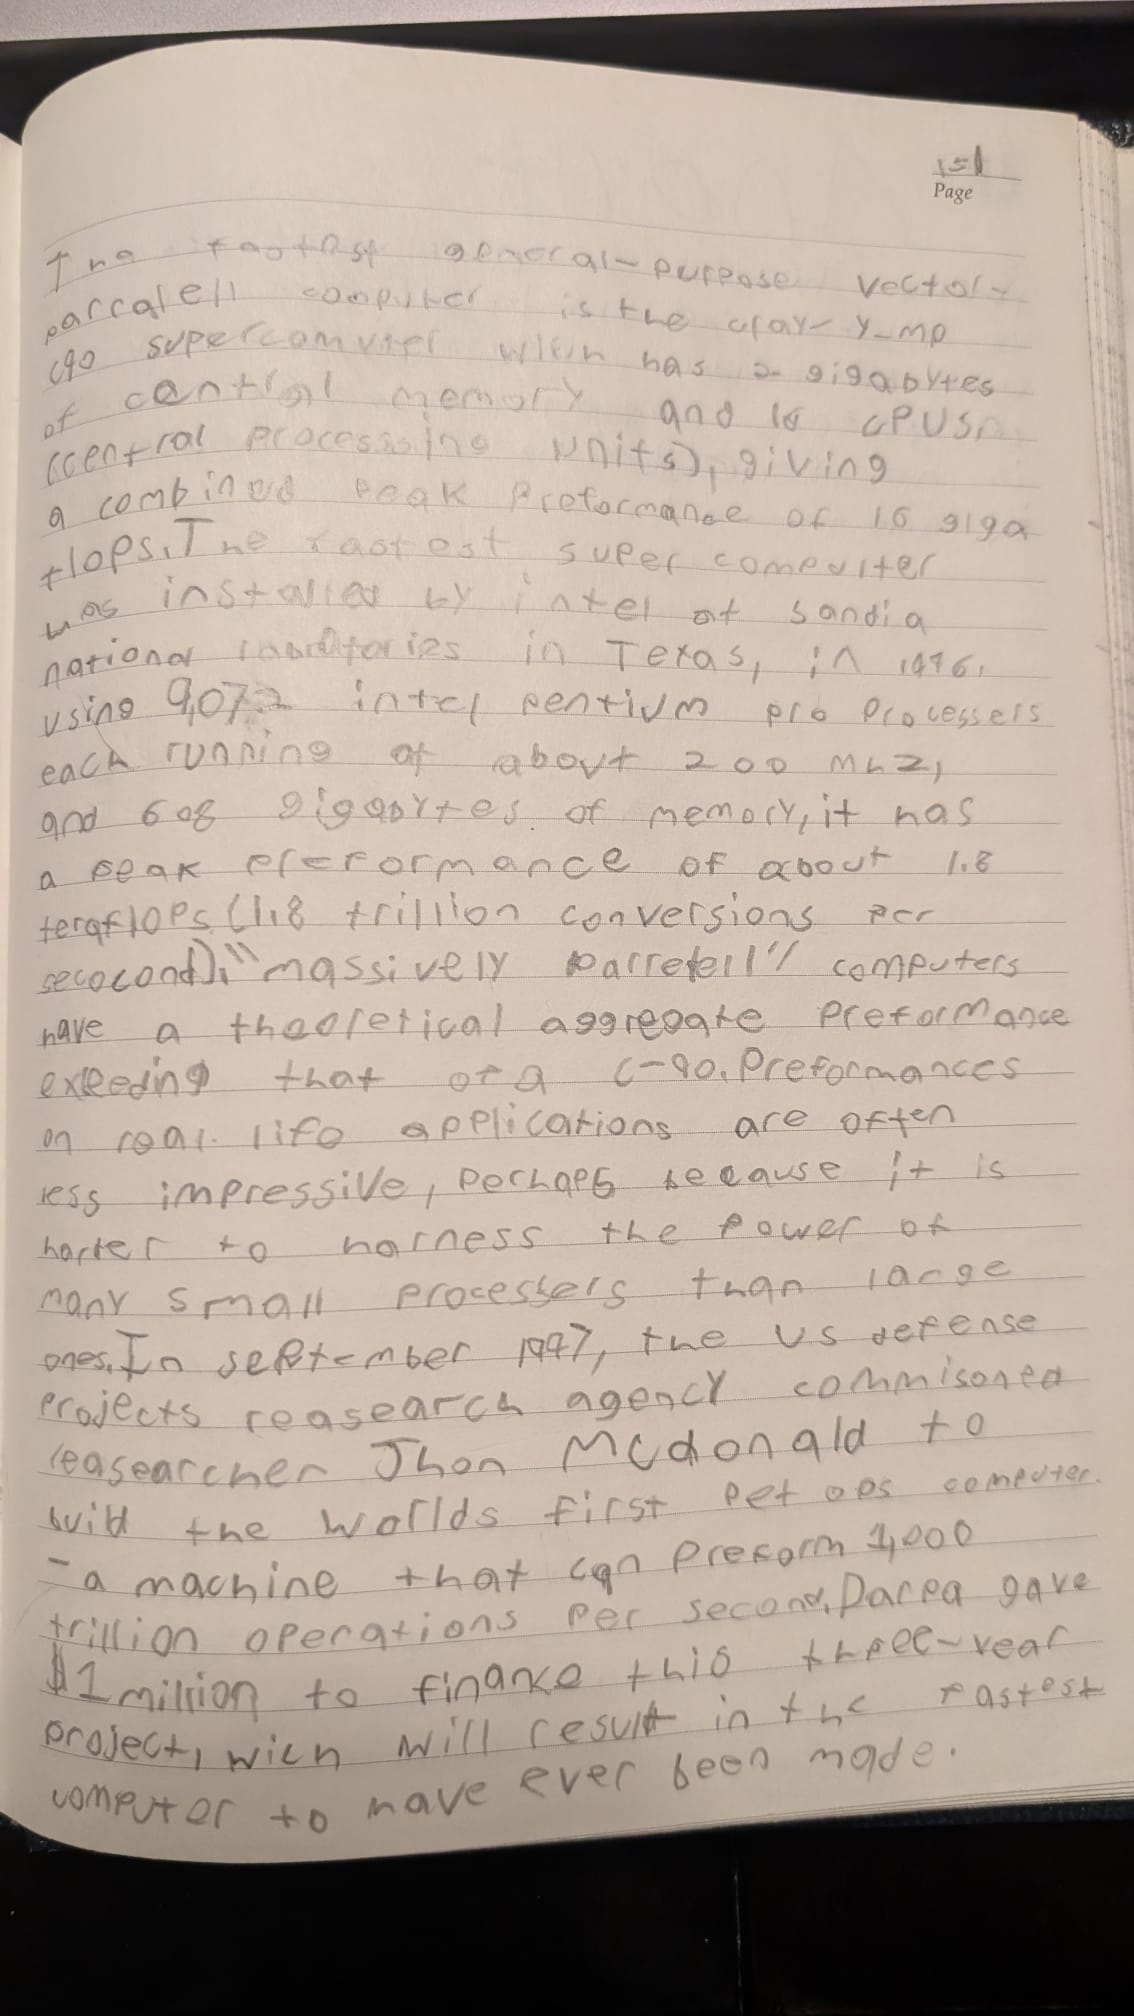 151
Page
The fastest general-purpose vector-
parcalell computer is the cray-y-mp
c90 supercomvter wich has 2 gigabytes
of cantral memory and 16 CPUs
(central processsing units), giving
a combined peak preformance of 16 giga
flops. The fastest super computter
was installed by intel at sandia
national in Texas, in 1996,
using 9,072 intel pentium pro processers
each running at about 200 mhz,
and 608 gigabytes. of memory, it has
a peak preformance of about 1.8
teraflops (1.8 trillion conversions per
secocond). "massively parrelell" computers
have a theoretical aggregate preformance
exxeeding that of a C-90. Preformances
on real. life applications are often
less impressive, perhaps because it is
harter to harness the power of
many small processers than large
ones. In september 1997, the US defense
projects reasearch agency commisoned
reasearcher Jhon Mcdonald to
buid the worlds first pet ops computer.
- a machine that can preform 1,000
trillion operations per second. Darpa gave
$1 million to finance this three-year
project, wich will result in the fastest
computer to have ever been made.